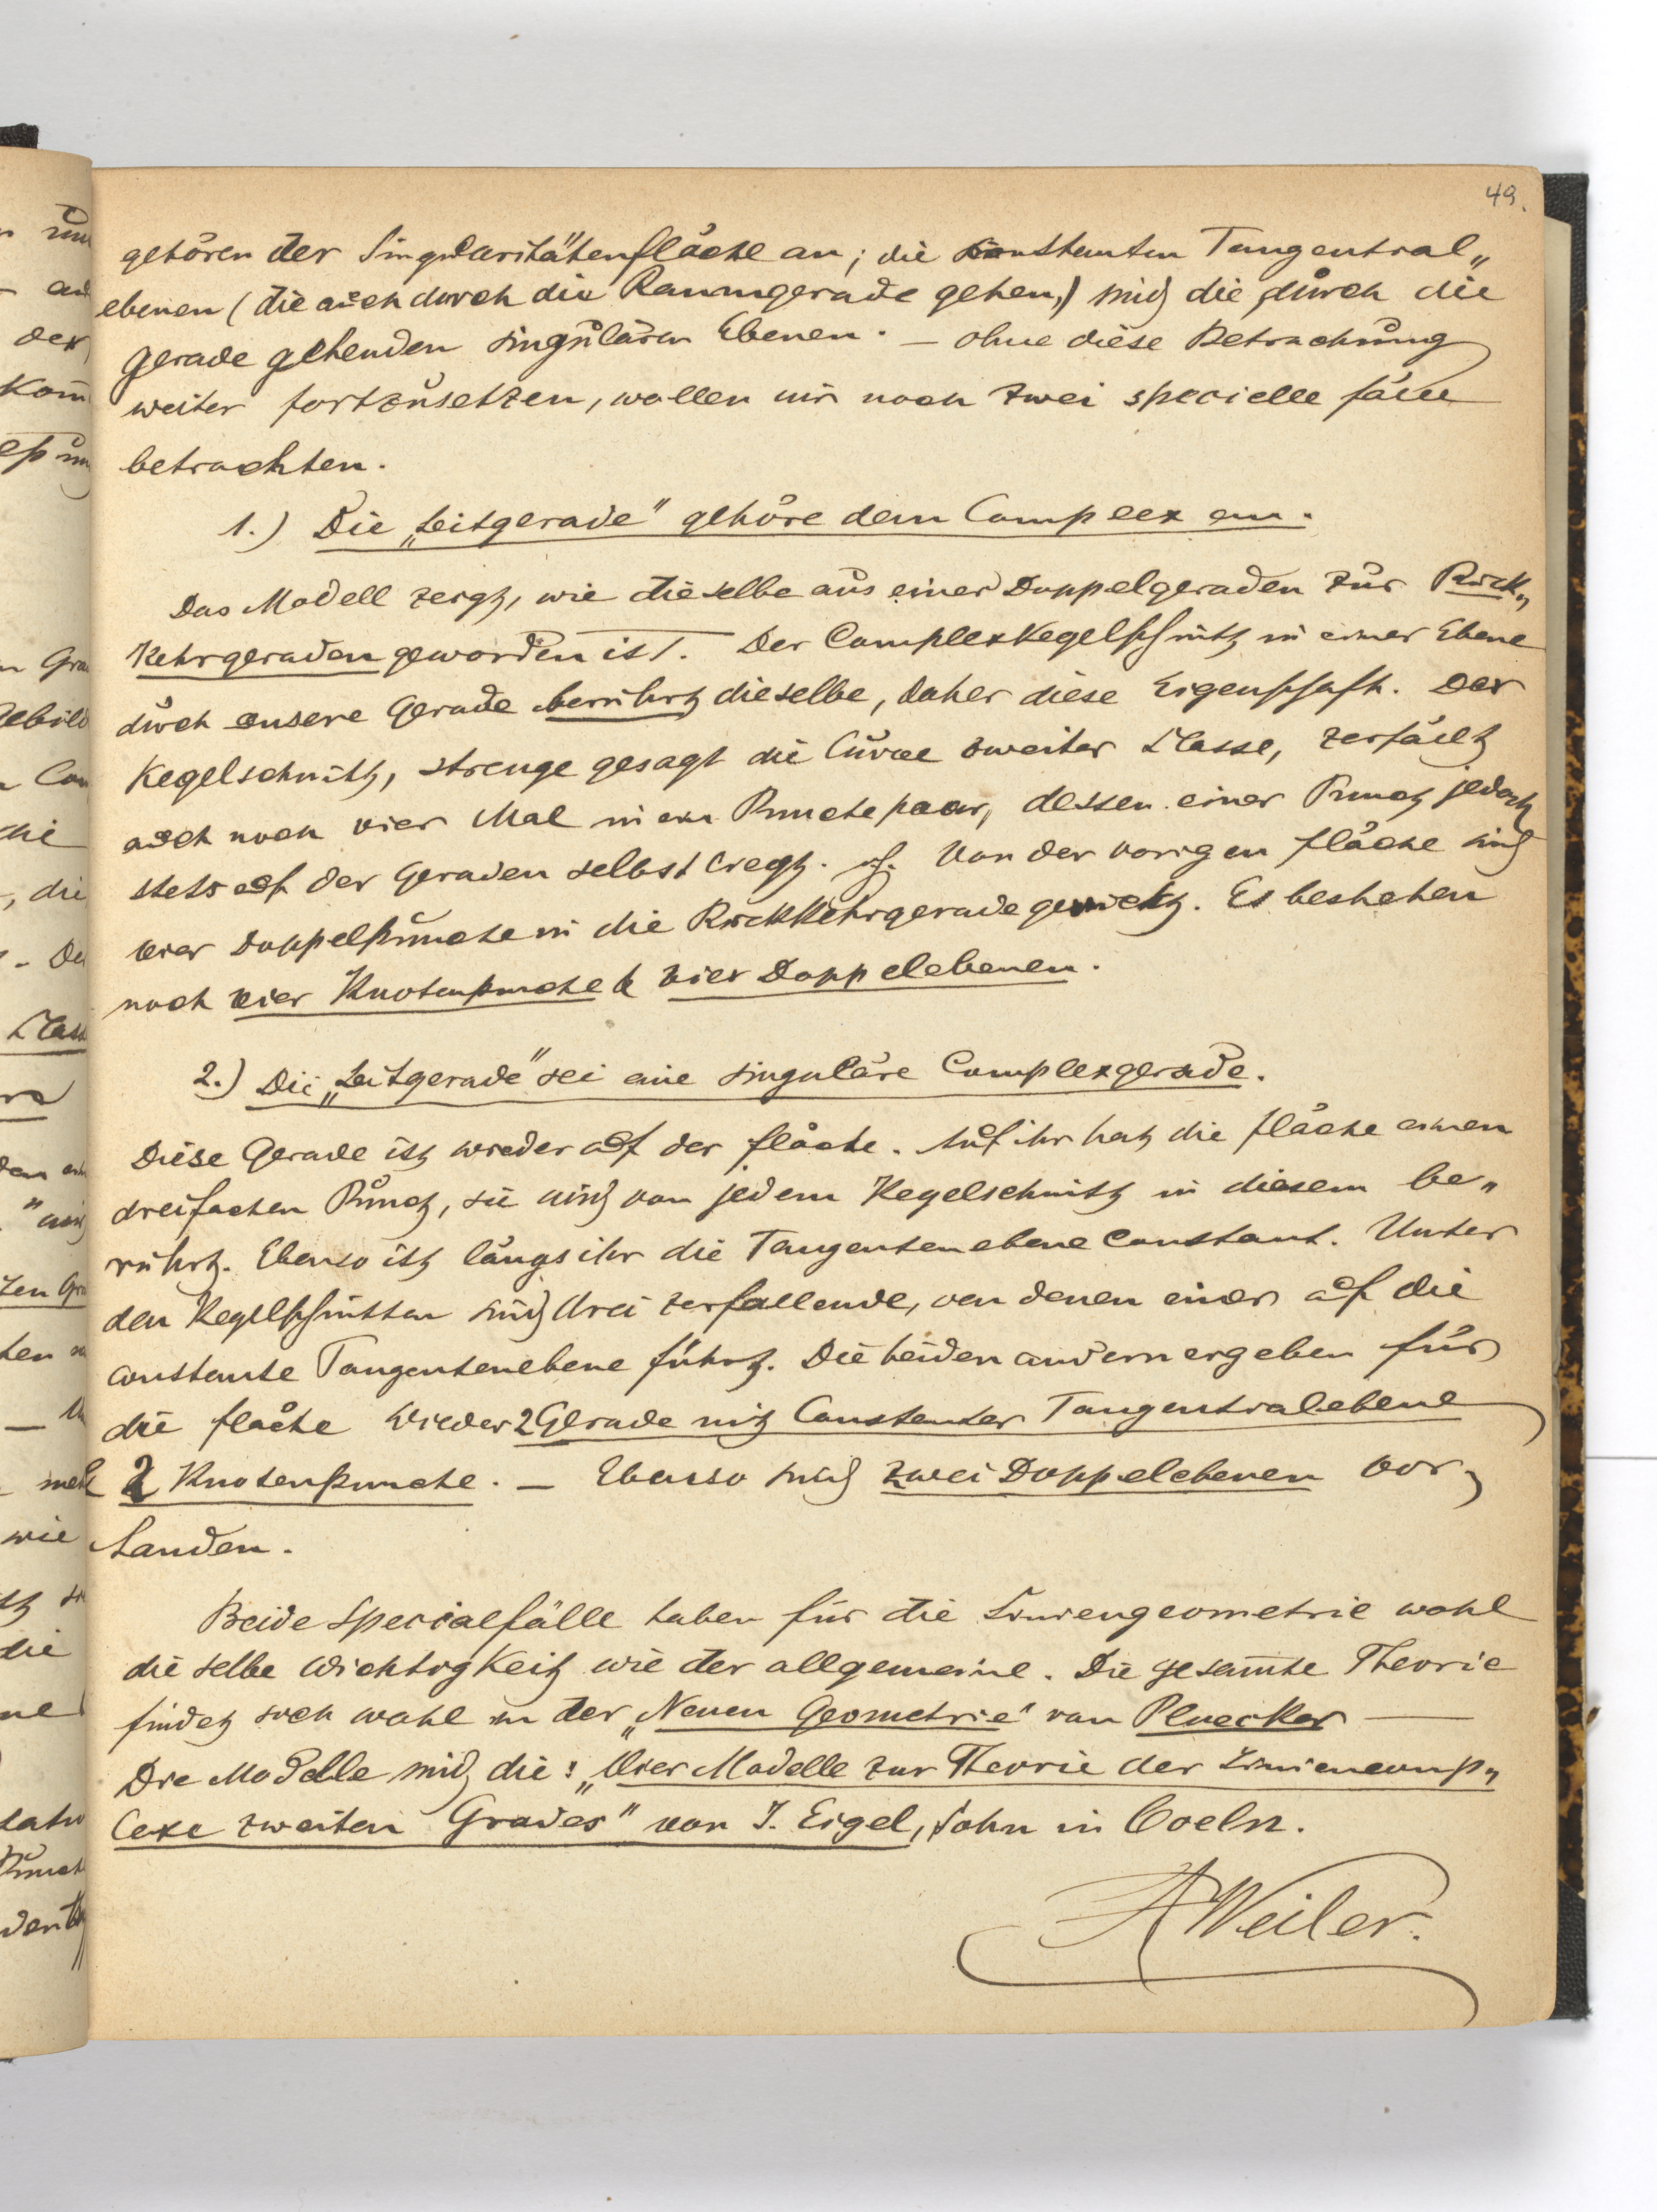 49.
gehören der Singularitätenfläche an; die constanten Tangential„
ebenen (die auch durch die Raumgerade gehen,) sind die durch die
Gerade gehenden singulären Ebenen. — Ohne diese Betrachtung
weiter fortzusetzen, wollen wir noch zwei specielle Fälle
betrachten.
1.) Die „Leitgerade" gehöre dem Complex an.
Das Modell zeigt, wie dieselbe aus einer Doppelgeraden zur Rück„
kehrgeraden geworden ist. Der Complexkegelschnitt in einer Ebene
durch unsere Gerade berührt dieselbe, daher diese Eigenschaft. Der
Kegelschnitt, strenge gesagt die Curve zweiter Classe, zerfällt
auch noch vier Mal in ein Punctepaar, dessen einer Punct jedoch
stets auf der Geraden selbst liegt. Von der vorigen Fläche sind
vier Doppelpuncte in die Rückkehrgerade gerückt. Es bestehen
noch vier Knotenpuncte & vier Doppelebenen.
2.) Die „Leitgerade" sei eine singuläre Complexgerade.
Diese Gerade ist wieder auf der Fläche. Auf ihr hat die Fläche einen
dreifachen Punct, sie wird von jedem Kegelschnitt in diesem be„
rührt. Ebenso ist längs ihr die Tangentenebene constant. Unter
den Kegelschnitten sind drei zerfallende, von denen einer auf die
constante Tangentenebene führt. Die beiden andern ergeben für
die Fläche wieder 2 Gerade mit constanter Tangentialebene
2 Knotenpuncte. — Ebenso sind zwei Doppelebenen vor„
handen.
Beide Specialfälle haben für die Liniengeometrie wohl
dieselbe Wichtigkeit wie der allgemeine. Die gesam̅te Theorie
findet sich wohl in der „Neuen Geometrie" von Pluecker —
Die Modelle sind die: „Vier Modelle zur Theorie der Liniencomp„
lexe zweiten Grades" von J. Eigel, Sohn in Coeln.
A Weiler.